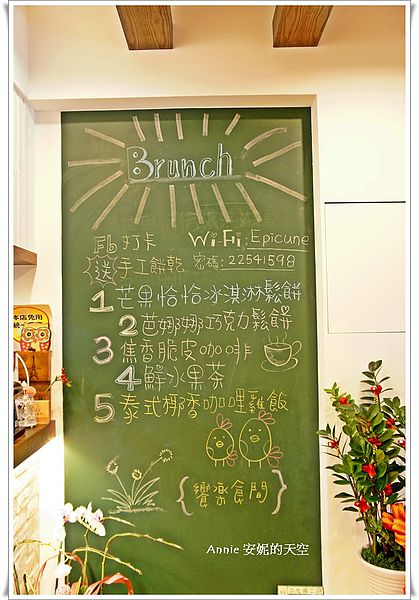 Brunch
FB 打卡
送 手工餅乾
Wi-Fi: Epicune
密碼: 22541598
1 芒果恰恰冰淇淋鬆餅
2 芭娜娜巧克力鬆餅
3 焦香脆皮咖啡
4 鮮水果茶
5 泰式椰香咖哩雞飯
{饗樂食間}
本店免用
統一
Annie 安妮的天空